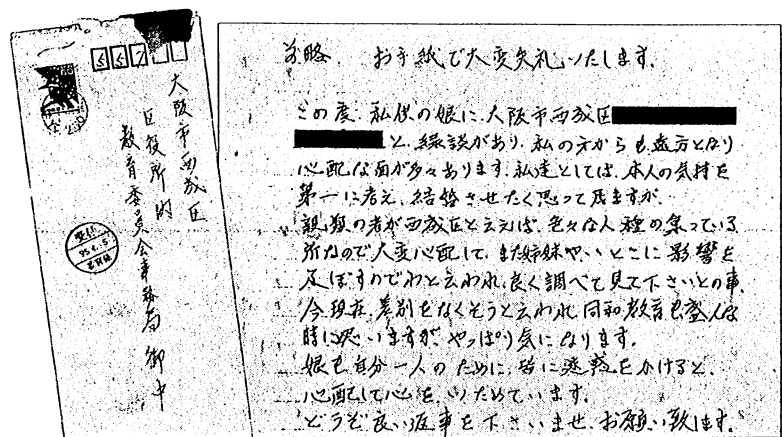 大阪市西成区
区役所内
教育委員会事務局 御中
受付
前略 お手紙で大変失礼いたします。
この度、私供の娘に、大阪市西成区
と、縁談があり、私の方からも遠方となり
心配な面が多々あります。私達としては、本人の気持を
第一に考え、結婚させたく思って居ますが、
親類の者が西成区と云えば、色々な人種の集っている
所なので大変心配して、また姉妹や、いとこに影響を
及ぼすのでわと云われ、良く調べて見て下さいとの事、
今現在、差別をなくそうと云われ、同和教育も盛んな
時に思いますが、やっぱり気になります。
娘も自分一人のために、皆に迷惑をかけると、
心配して心を、いためています。
どうぞ良い返事を下さいませ、お願い致します。